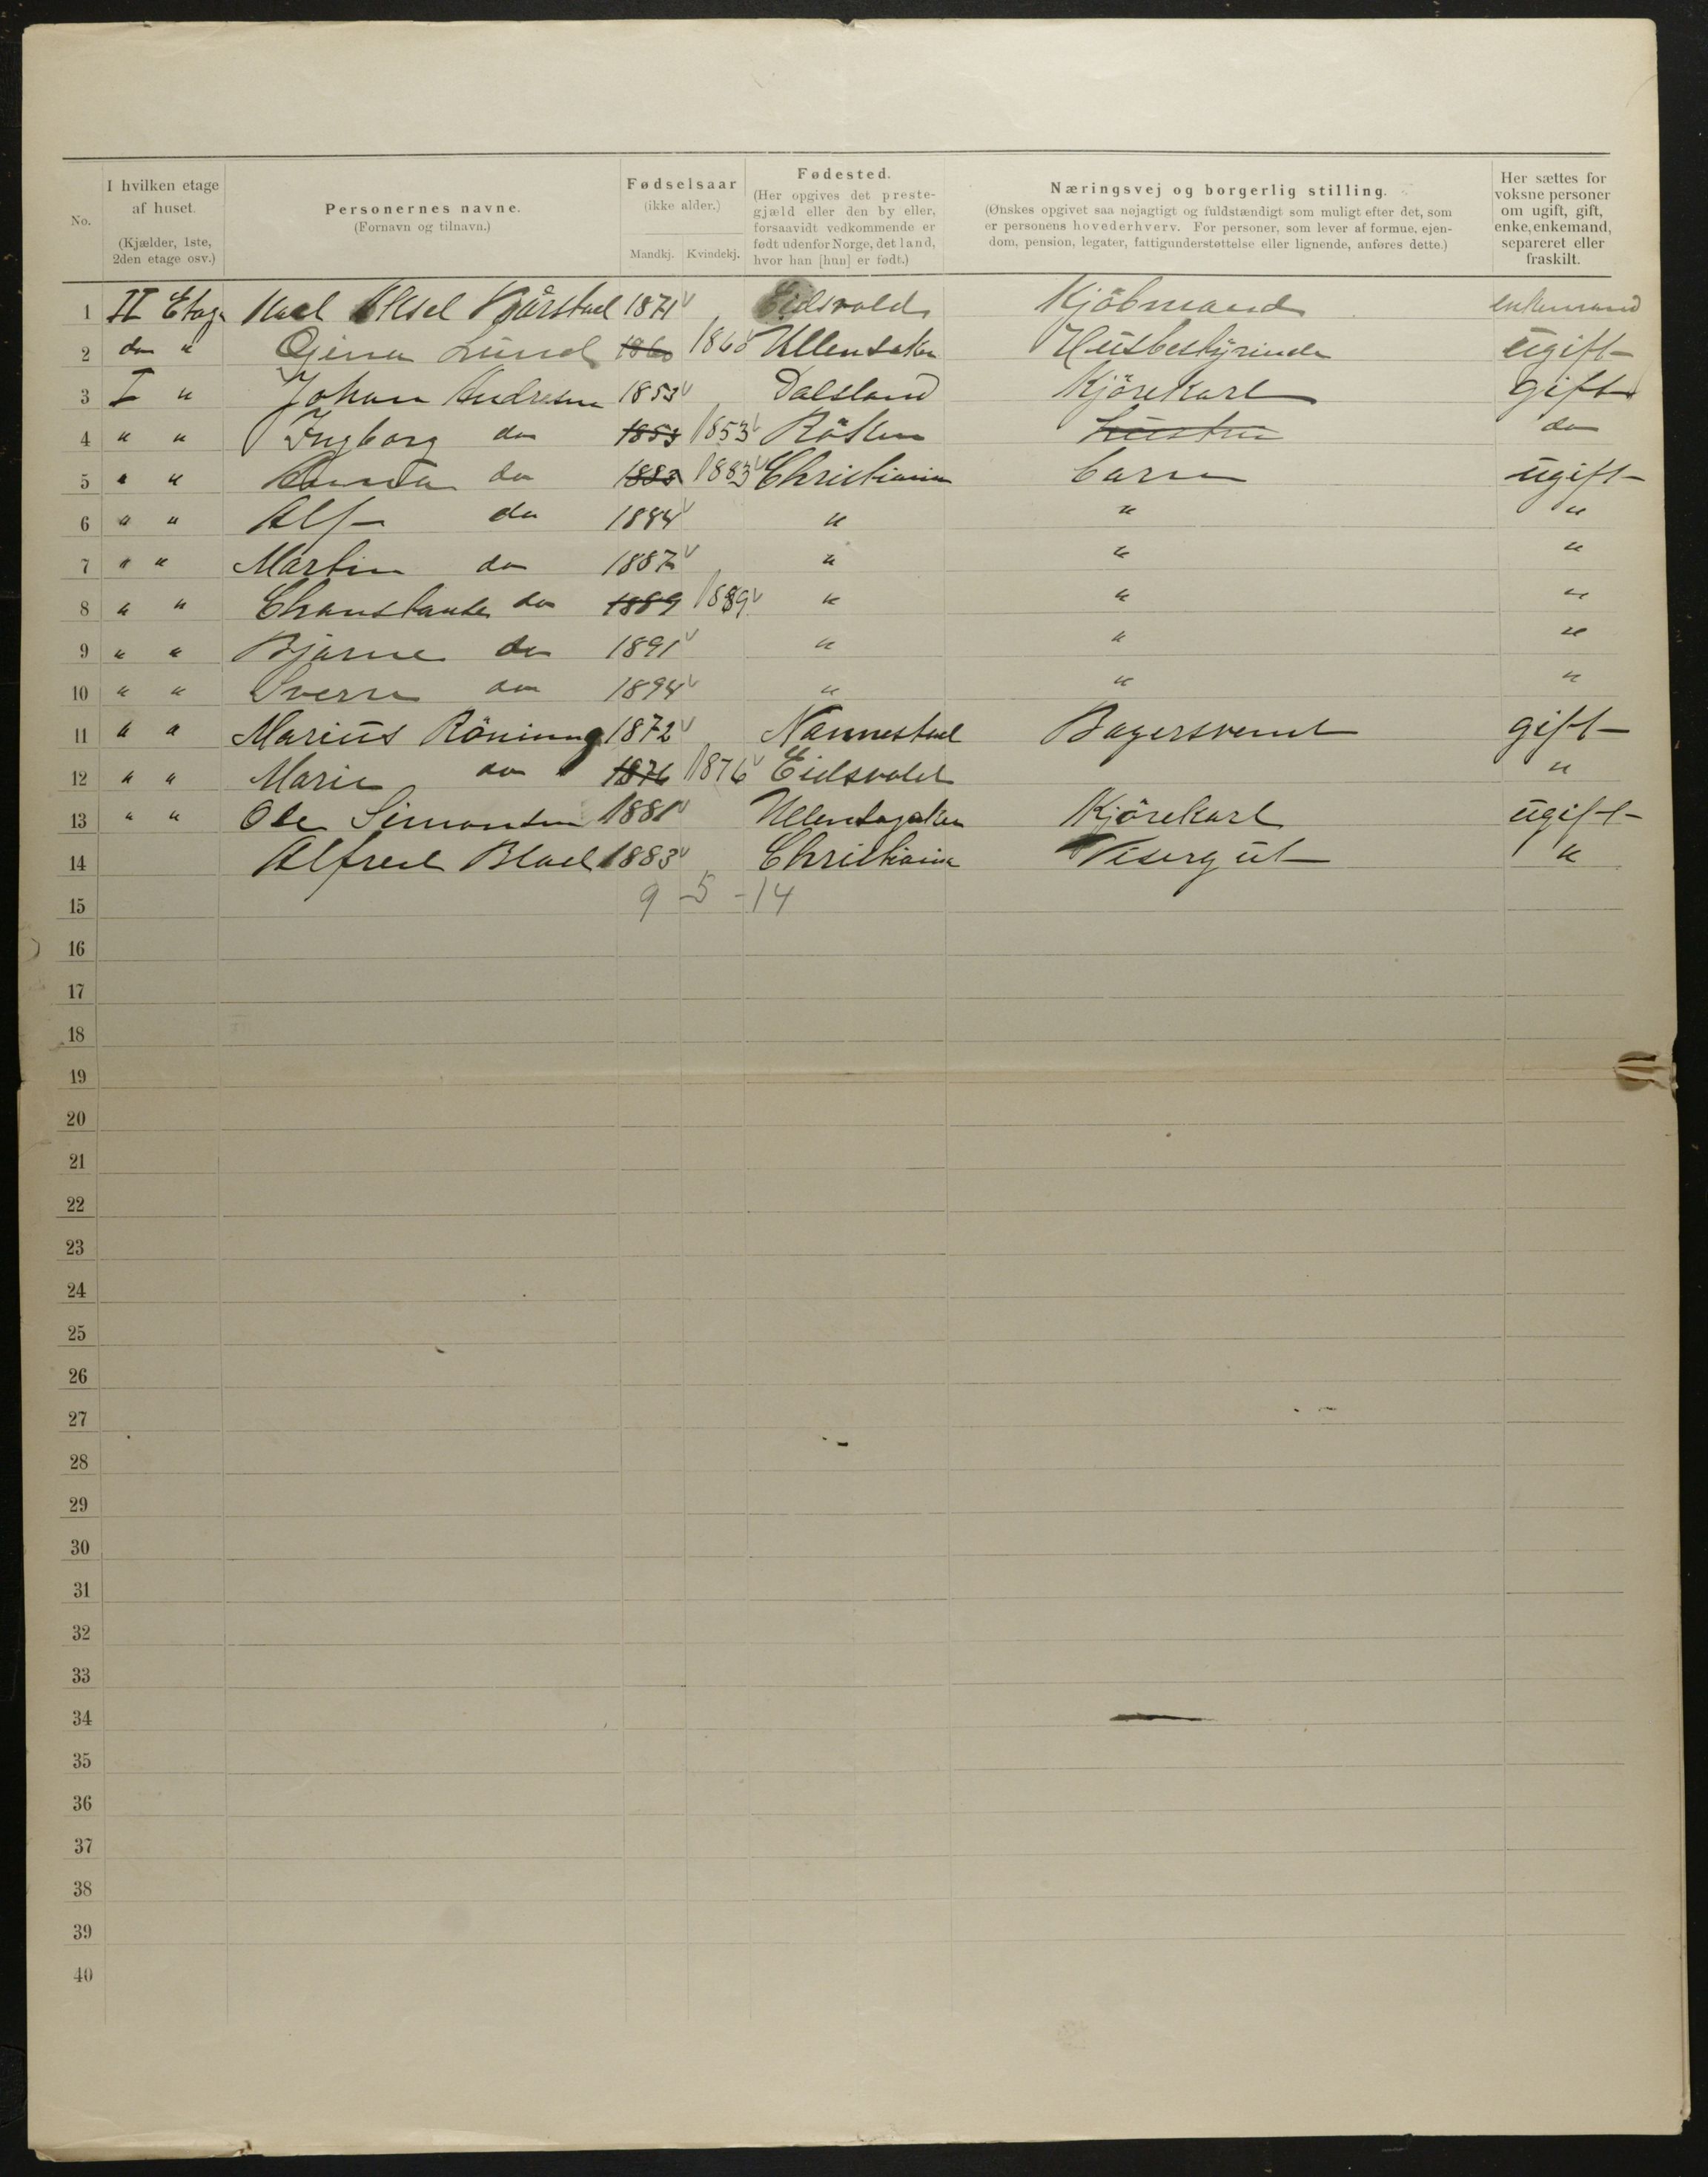 No.
I hvilken etage
af huset.
(Kjælder, 1ste,
2den etage osv.)
Personernes navne.
(Fornavn og tilnavn.)
Fødselsaar
(ikke alder.)
Mandkj. Kvindekj.
Fødested.
(Her opgives det preste-
gjæld eller den by eller,
forsaavidt vedkommende er
født udenfor Norge, det land,
hvor han [hun] er født.)
Næringsvej og borgerlig stilling.
(Ønskes opgivet saa nøjagtigt og fuldstændigt som muligt efter det, som
er personens hovederhverv. For personer, som lever af formue, ejen-
dom, pension, legater, fattigunderstøttelse eller lignende, anføres dette.)
Her sættes for
voksne personer
om ugift, gift,
enke, enkemand,
separeret eller
fraskilt.
1 II Etage Aksel 1871 Eidsvold Kjöbmand enkemand
2 do " Lund 1860 1860 Ullensaker Husbestyrinde ugift
3 I " Johan Andresen 1853 Dalsland Kjörekarl gift
4 " " Ingborg do 1853 1853 Röken Hustru do
5 " " do 1883 1883 Christiania barn ugift
6 " " Alf do 1884 " " "
7 " " Martin do 1887 " " "
8 " " do 1889 1889 " " "
9 " " Bjarne do 1891 " " "
10 " " Sverre do 1894 " " "
11 " " Marius Röning 1872 Nannestad Bagersvend gift
12 " " Marie do 1876 1876 Eidsvold "
13 " " Ole Simonsen 1881 Kjörekarl ugift
14 Alfred 1883 Christiania Visergut "
15 9 - 5 - 14
16
17
18
19
20
21
22
23
24
25
26
27
28
29
30
31
32
33
34
35
36
37
38
39
40